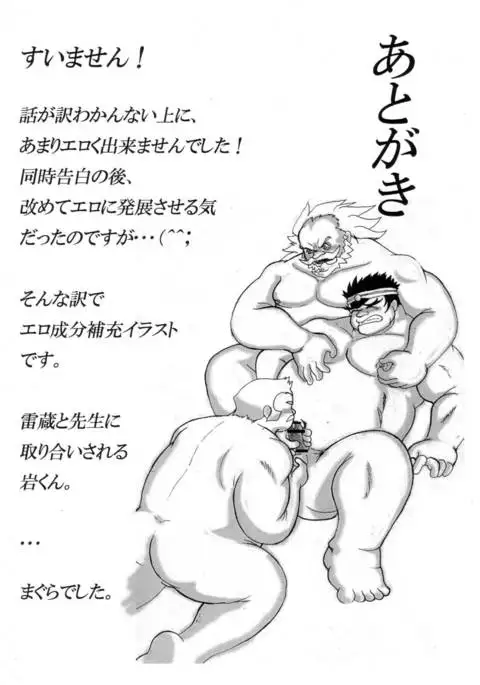 あとがき
すいません！
話が訳わかんない上に、
あまりエロく出来ませんでした！
同時告白の後、
改めてエロに発展させる気
だったのですが…(^^;
そんな訳で
エロ成分補充イラスト
です。
雷蔵と先生に
取り合いされる
岩くん。
…
まぐらでした。